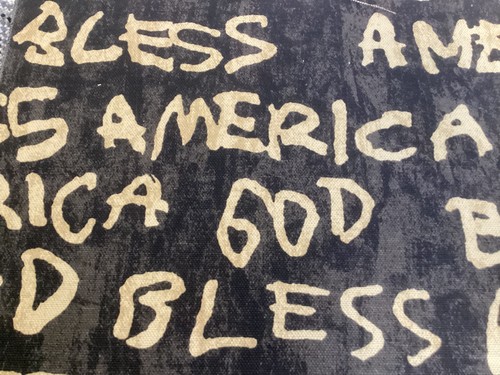 BLESS AME
SS AMERICA
RICA GOD B
D BLESS